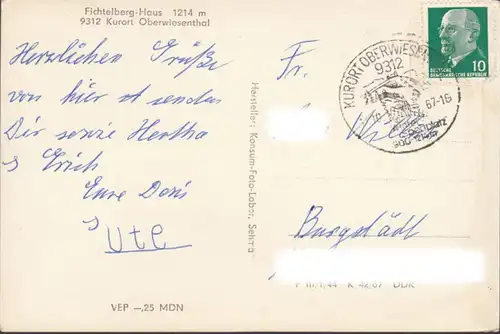 Fichtelberg-Haus 1214 m
9312 Kurort Oberwiesenthal
Herzlichen Grüße
von hier ist senden
Dir sowie Hertha
u. Erich
Eure Doris
u. Ute
VEP —,25 MDN
Hersteller: Konsum-Foto-Labor, Sehma
Fr.
Burgstädt
KURORT OBERWIESEN
9312
67-16
DEUTSCHE
DEMOKRATISCHE REPUBLIK
10
P III/1/44 K 42/67 DDR